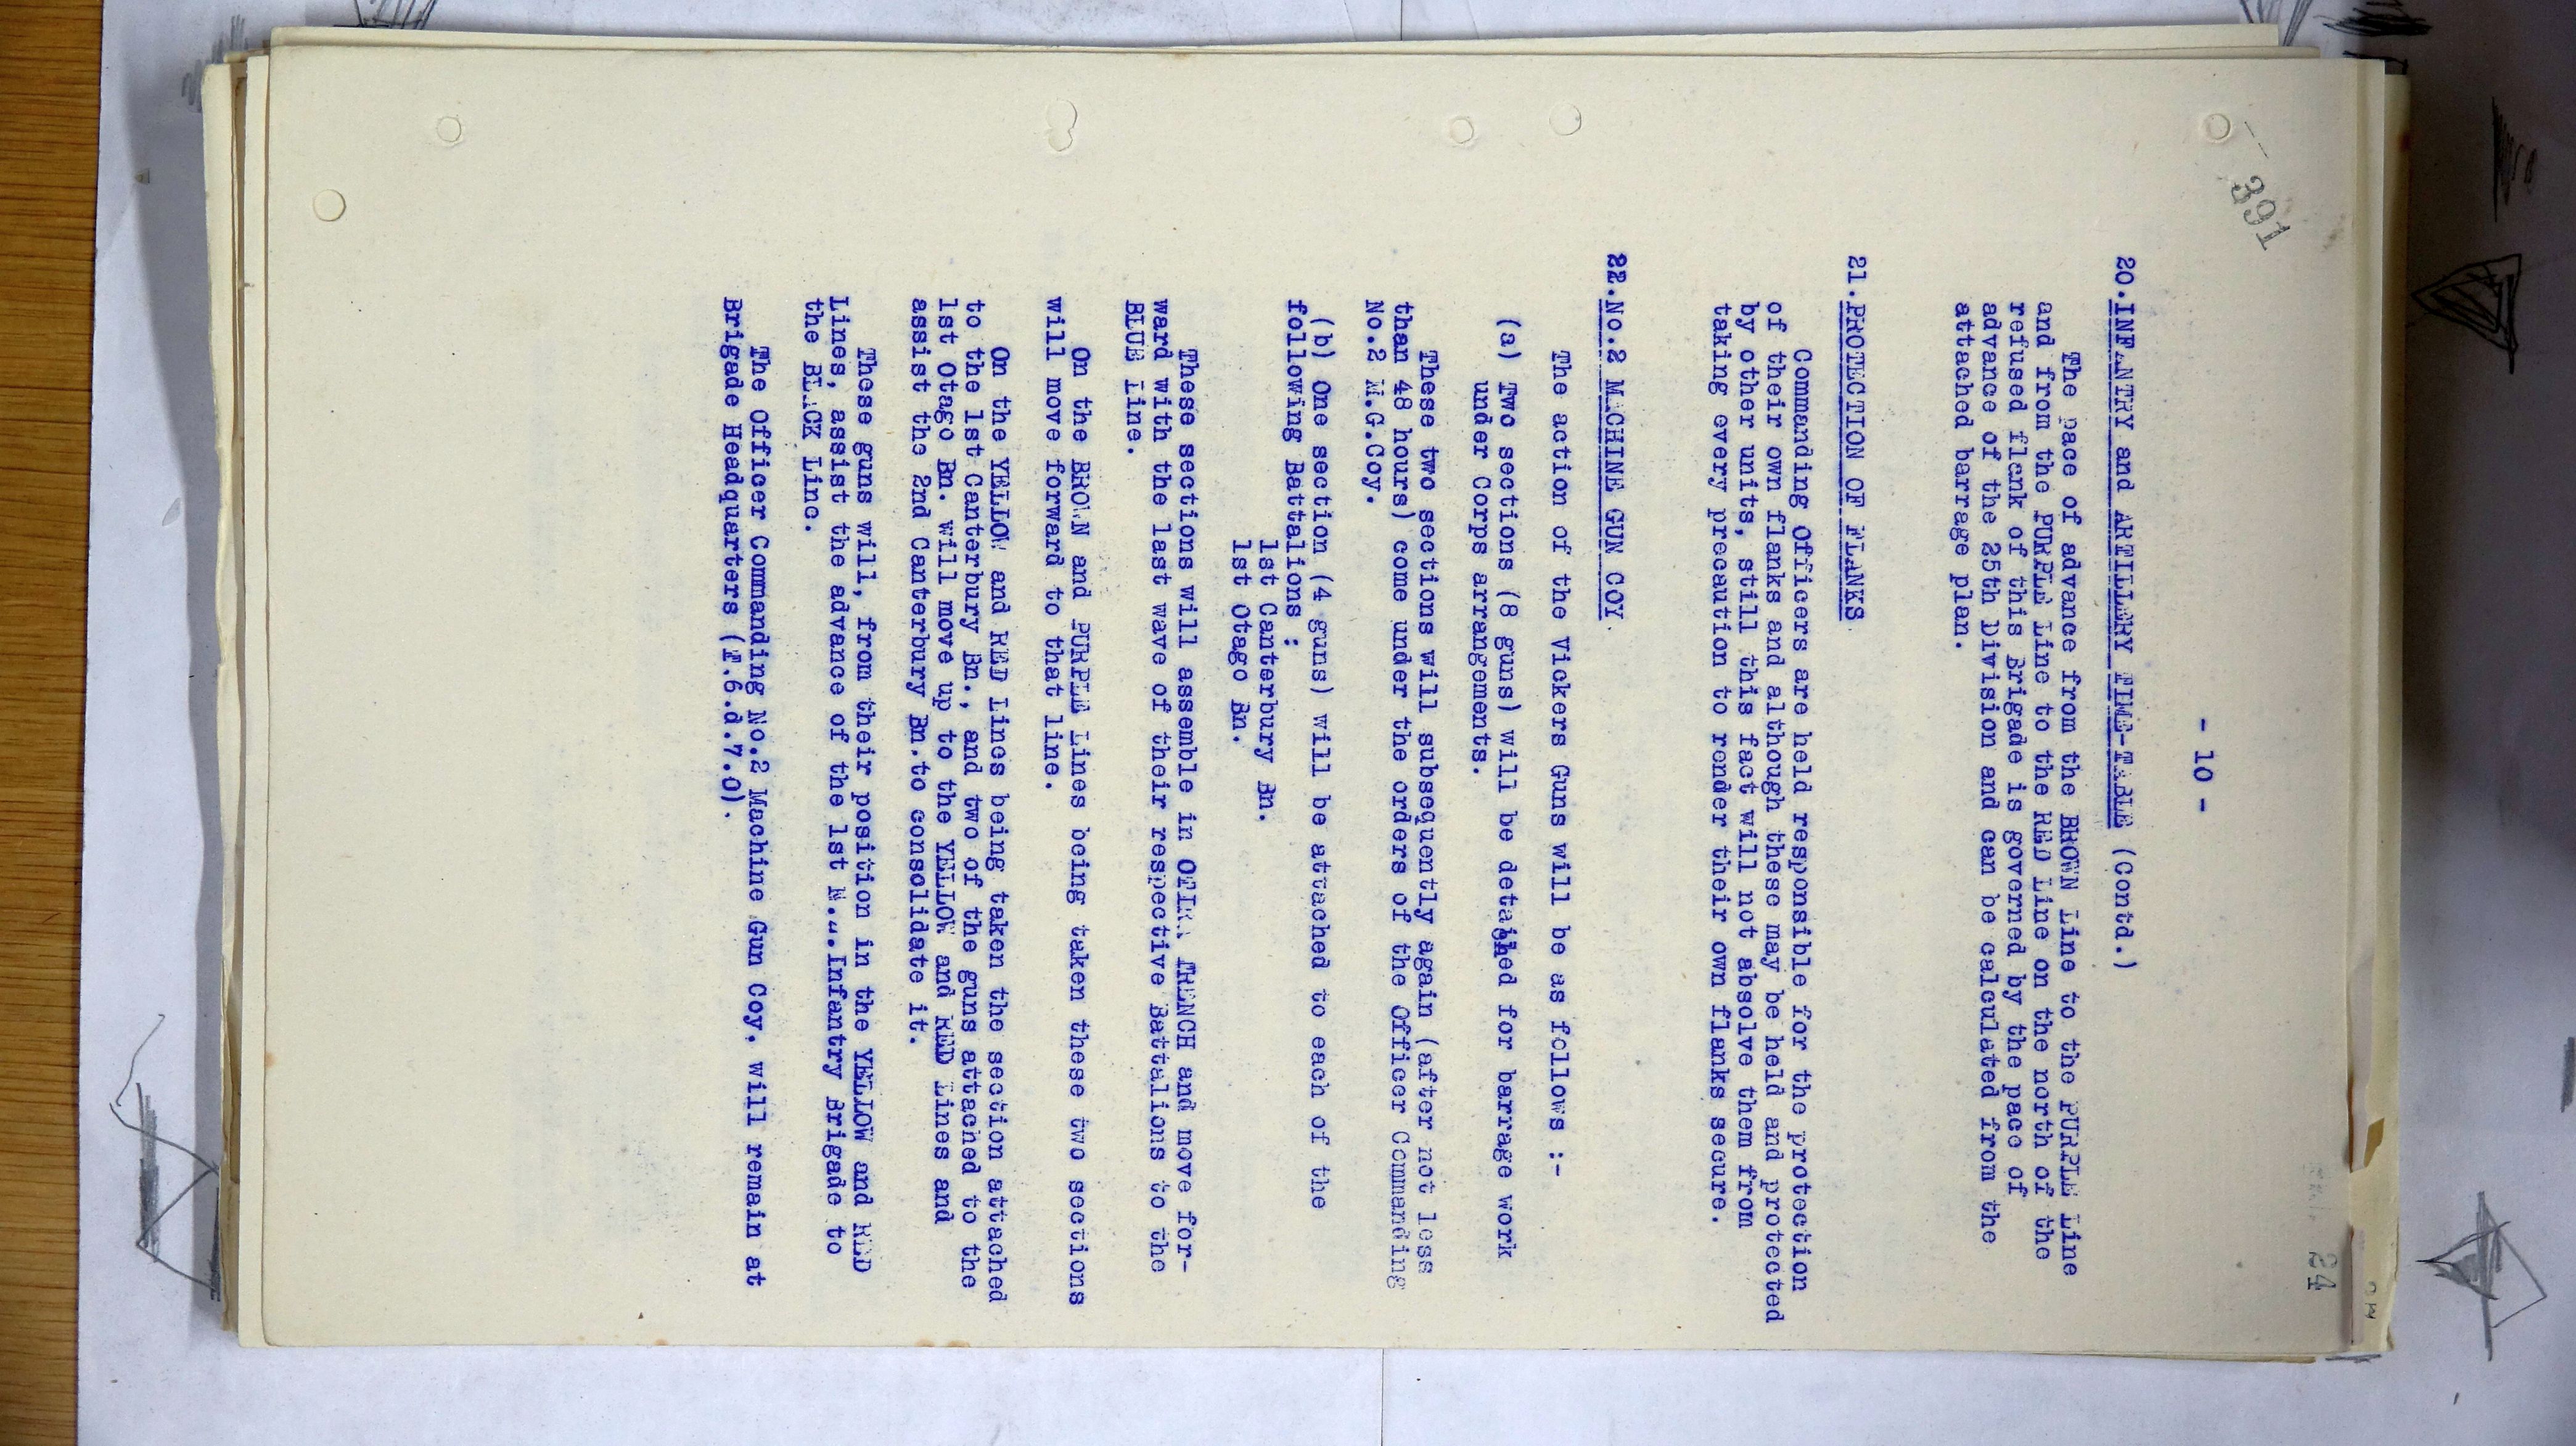 391
24
- 10 -
20. INFANTRY and ARTILLERY TIME-TABLE (Contd.)
The pace of advance from the BROWN Line to the PURPLE Line
and from the PURPLE Line to the RED Line on the north of the
refused flank of this Brigade is governed by the pace of
advance of the 25th Division and can be calculated from the
attached barrage plan.
21. PROTECTION OF FLANKS.
Commanding Officers are held responsible for the protection
of their own flanks and although these may be held and protected
by other units, still this fact will not absolve them from
taking every precaution to render their own flanks secure.
22. No.2 MACHINE GUN COY.
The action of the Vickers Guns will be as follows :-
(a) Two sections (8 guns) will be detached for barrage work
under Corps arrangements.
These two sections will subsequently again (after not less
than 48 hours) come under the orders of the Officer Commanding
No.2 M.G.Coy.
(b) One section (4 guns) will be attached to each of the
following Battalions :
1st Canterbury Bn.
1st Otago Bn.
These sections will assemble in OTIRA TRENCH and move for-
ward with the last wave of their respective Battalions to the
BLUE Line.
On the BROWN and PURPLE Lines being taken these two sections
will move forward to that line.
On the YELLOW and RED Lines being taken the section attached
to the 1st Canterbury Bn., and two of the guns attached to the
1st Otago Bn. will move up to the YELLOW and RED Lines and
assist the 2nd Canterbury Bn. to consolidate it.
These guns will, from their position in the YELLOW and RED
Lines, assist the advance of the 1st N.Z. Infantry Brigade to
the BLACK Line.
The Officer Commanding No.2 Machine Gun Coy. will remain at
Brigade Headquarters (T.6.d.7.0).